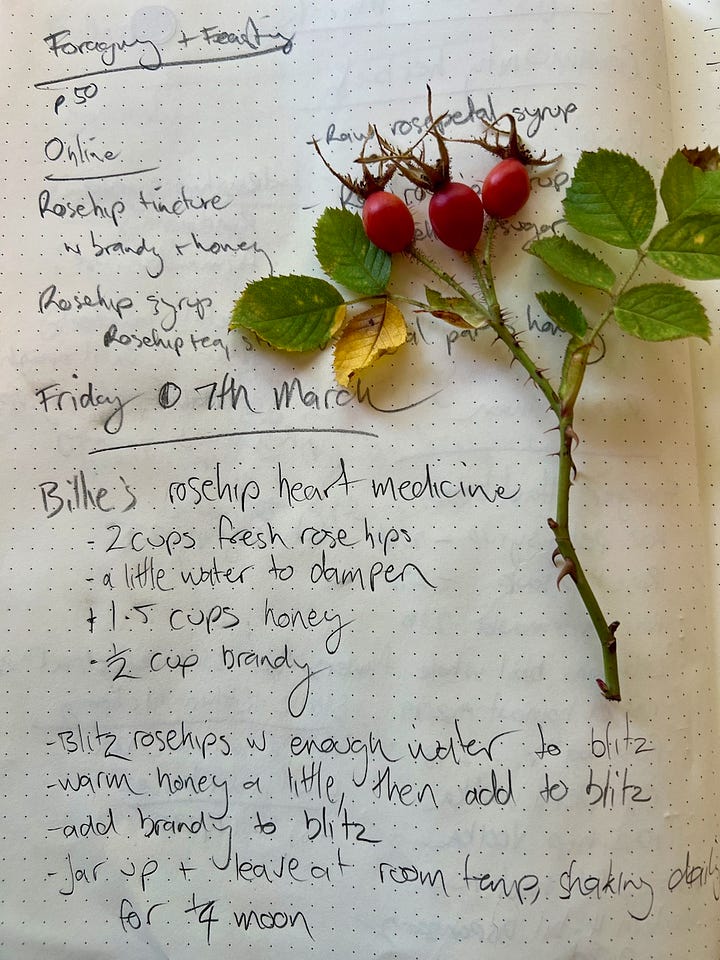 Foraging + Feasting
p 50
Online
- Raw rosepetal syrup
Rosehip tincture
w brandy + honey
sugar
Rosehip syrup
Rosehip tea
Friday 7th March
Billie's rosehip heart medicine
- 2 cups fresh rosehips
- a little water to dampen
+ 1.5 cups honey
- ½ cup brandy
- Blitz rosehips w enough water to blitz
- warm honey a little, then add to blitz
- add brandy to blitz
- Jar up + leave at room temp, shaking daily
for ¼ moon